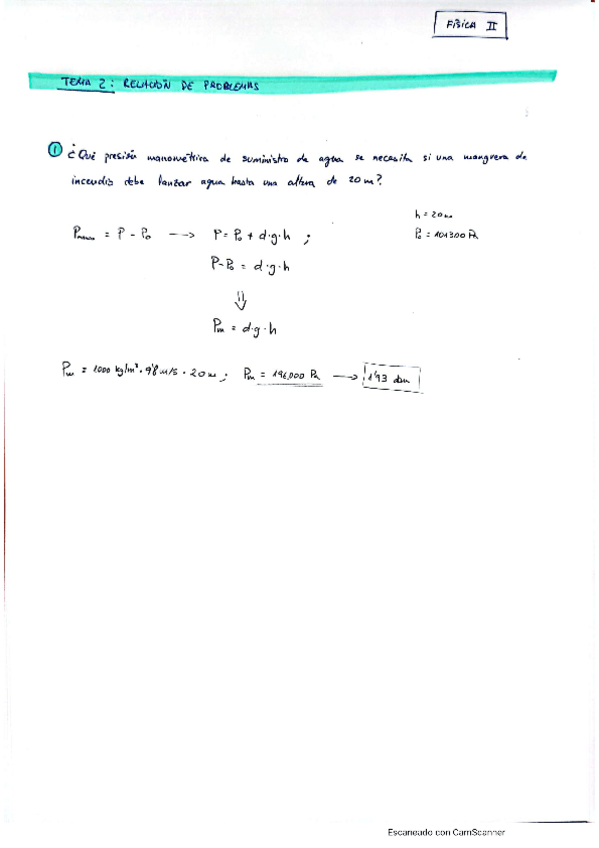 FÍSICA II
TEMA 2: RELACIÓN DE PROBLEMAS
① ¿Qué presión manométrica de suministro de agua se necesita si una manguera de
incendio debe lanzar agua hasta una altura de 20 m?
h = 20 m
Pman = P - P₀ ---> P = P₀ + d·g·h ;
P₀ = 101300 Pa
P-P₀ = d·g·h
⇓
Pm = d·g·h
Pm = 1000 kg/m³ · 9'8 m/s · 20 m ; Pm = 196.000 Pa ---> 1'93 atm
Escaneado con CamScanner